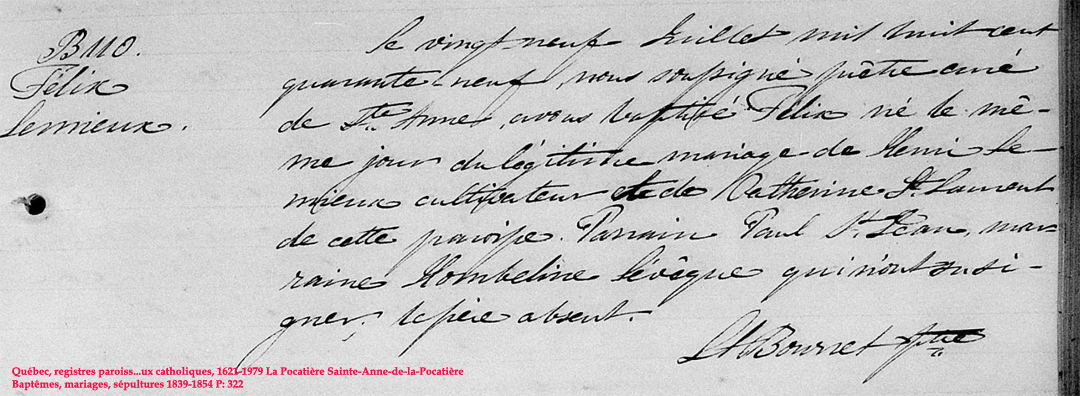 B110.
Félix
Lemieux.
Le vingt-neuf Juillet mil huit cent
quarante-neuf, nous soussigné prêtre curé
de Ste Anne, avons baptisé Félix né le mê-
me jour du légitime mariage de Henri Le-
mieux cultivateur & de Catherine St Laurent
de cette paroisse. Parrain Paul St Jean, mar-
raine Hombeline Lévêque qui n'ont su si-
gner, le père absent.
Bourret Ptre
Québec, registres paroiss...ux catholiques, 1621-1979 La Pocatière Sainte-Anne-de-la-Pocatière
Baptêmes, mariages, sépultures 1839-1854 P: 322